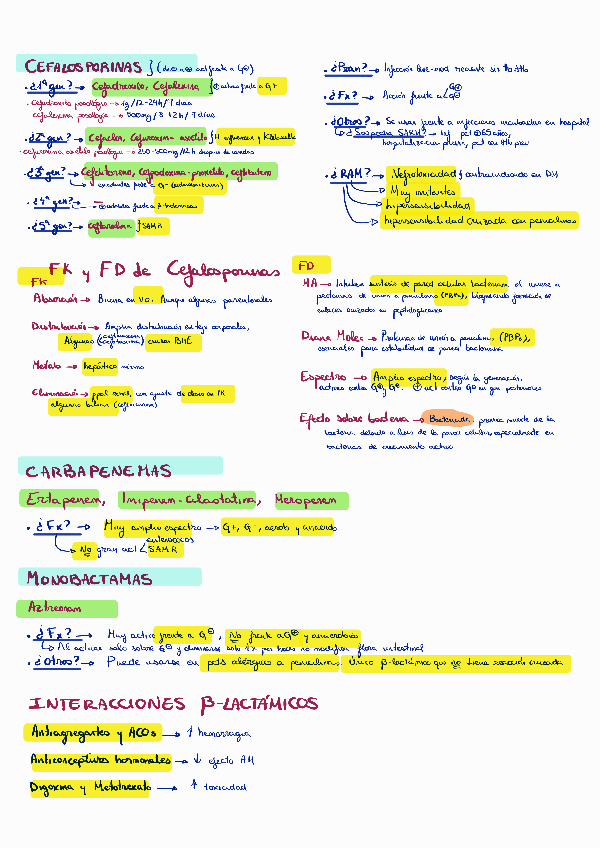 CEFALOSPORINAS } (des a no act frente a G⊕)
• ¿1ª gen? → Cefadroxilo, Cefalexina } ⊕ activo frente a G+
· cefadroxilo posología → 1g /12-24h/ 7 días
cefalexina, posología → 500mg / 8-12h / 7 días
• ¿2ª gen? → Cefaclor, Cefuroxima-axetilo } H. influenzae y Klebsiella
· cefuroxima axetilo posología → 250-500mg/12h después de comidas
• ¿3ª gen? → Cefditoreno, Cefpodoxima-proxetilo, ceftibuten
→ excelentes frente a G- (enterobacterias)
• ¿4ª gen? → —
→ frente a P. aeruginosa
• ¿5ª gen? → Ceftarolina } SAMR
• ¿Pran? →
• ¿Fx? → Acción frente a G⊕ G⊖
• ¿Otros? → Se usan frente a infecciones en hospital
→ ¿Sospecha SARM? → pat @65 años,
hospitalización previa, pat con ttto previo
• ¿RAM? → Nefrotoxicidad } contraindicado en DM
→ Muy irritantes
→ hipersensibilidad
→ hipersensibilidad cruzada con penicilinas
FK y FD de Cefalosporinas
FK
Absorción → Buena en VO. Aunque algunas parenterales
Distribución → Amplia distribución en tej. corporales,
Algunas (ceftriaxona) cruzan BHE
Metabo → hepático mínimo
Eliminación → ppal renal, con ajuste de dosis en IR
algunas biliar (ceftriaxona)
FD
MA → Inhiben síntesis de pared celular bacteriana al unirse a
proteínas de unión a penicilina (PBPs), bloqueando formación de
enlaces cruzados en peptidoglicano
Diana Molec → Proteínas de unión a penicilina, (PBPs),
esenciales para estabilidad de pared bacteriana
Espectro → Amplio espectro, según la generación,
activas contra G⊕ y G⊖. ⊕ act contra G⊖ en gen posteriores
Efecto sobre bacteria → Bactericida, provoca muerte de la
bacteria debido a lisis de la pared celular, especialmente en
bacterias de crecimiento activo
CARBAPENEMAS
Ertapenem, Imipenem-Cilastatina, Meropenem
• ¿Fx? → Muy amplio espectro → G+, G-, aerob y anaerob
→ No gran act < enterococos SAMR
MONOBACTAMAS
Aztreonam
• ¿Fx? → Muy activo frente a G⊖, No frente a G⊕ y anaerobios
→ Al actuar solo sobre G⊖ y eliminarse ante IV por heces no modifican flora intestinal
• ¿Otros? → Puede usarse en pats alérgicos a penicilinas. Único β-lactámico que no tiene reacción cruzada
INTERACCIONES β-LACTÁMICOS
Antiagregantes y ACOs → ↑ hemorragia
Anticonceptivos hormonales → ↓ efecto AH
Digoxina y Metotrexato → ↑ toxicidad